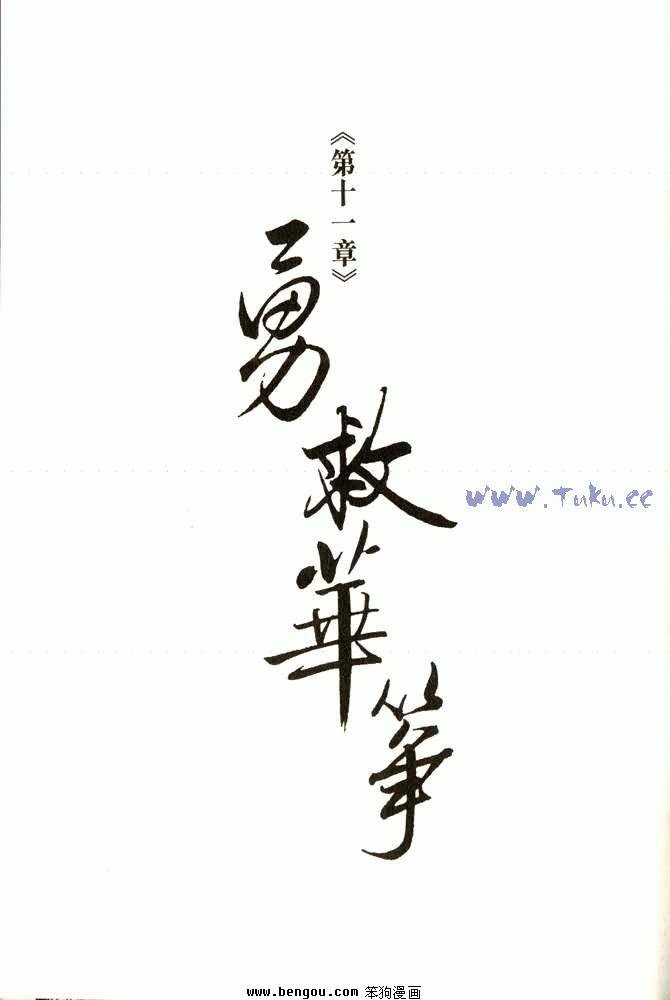 《第十一章》
勇救華箏
www.Tuku.cc
www.bengou.com 笨狗漫画